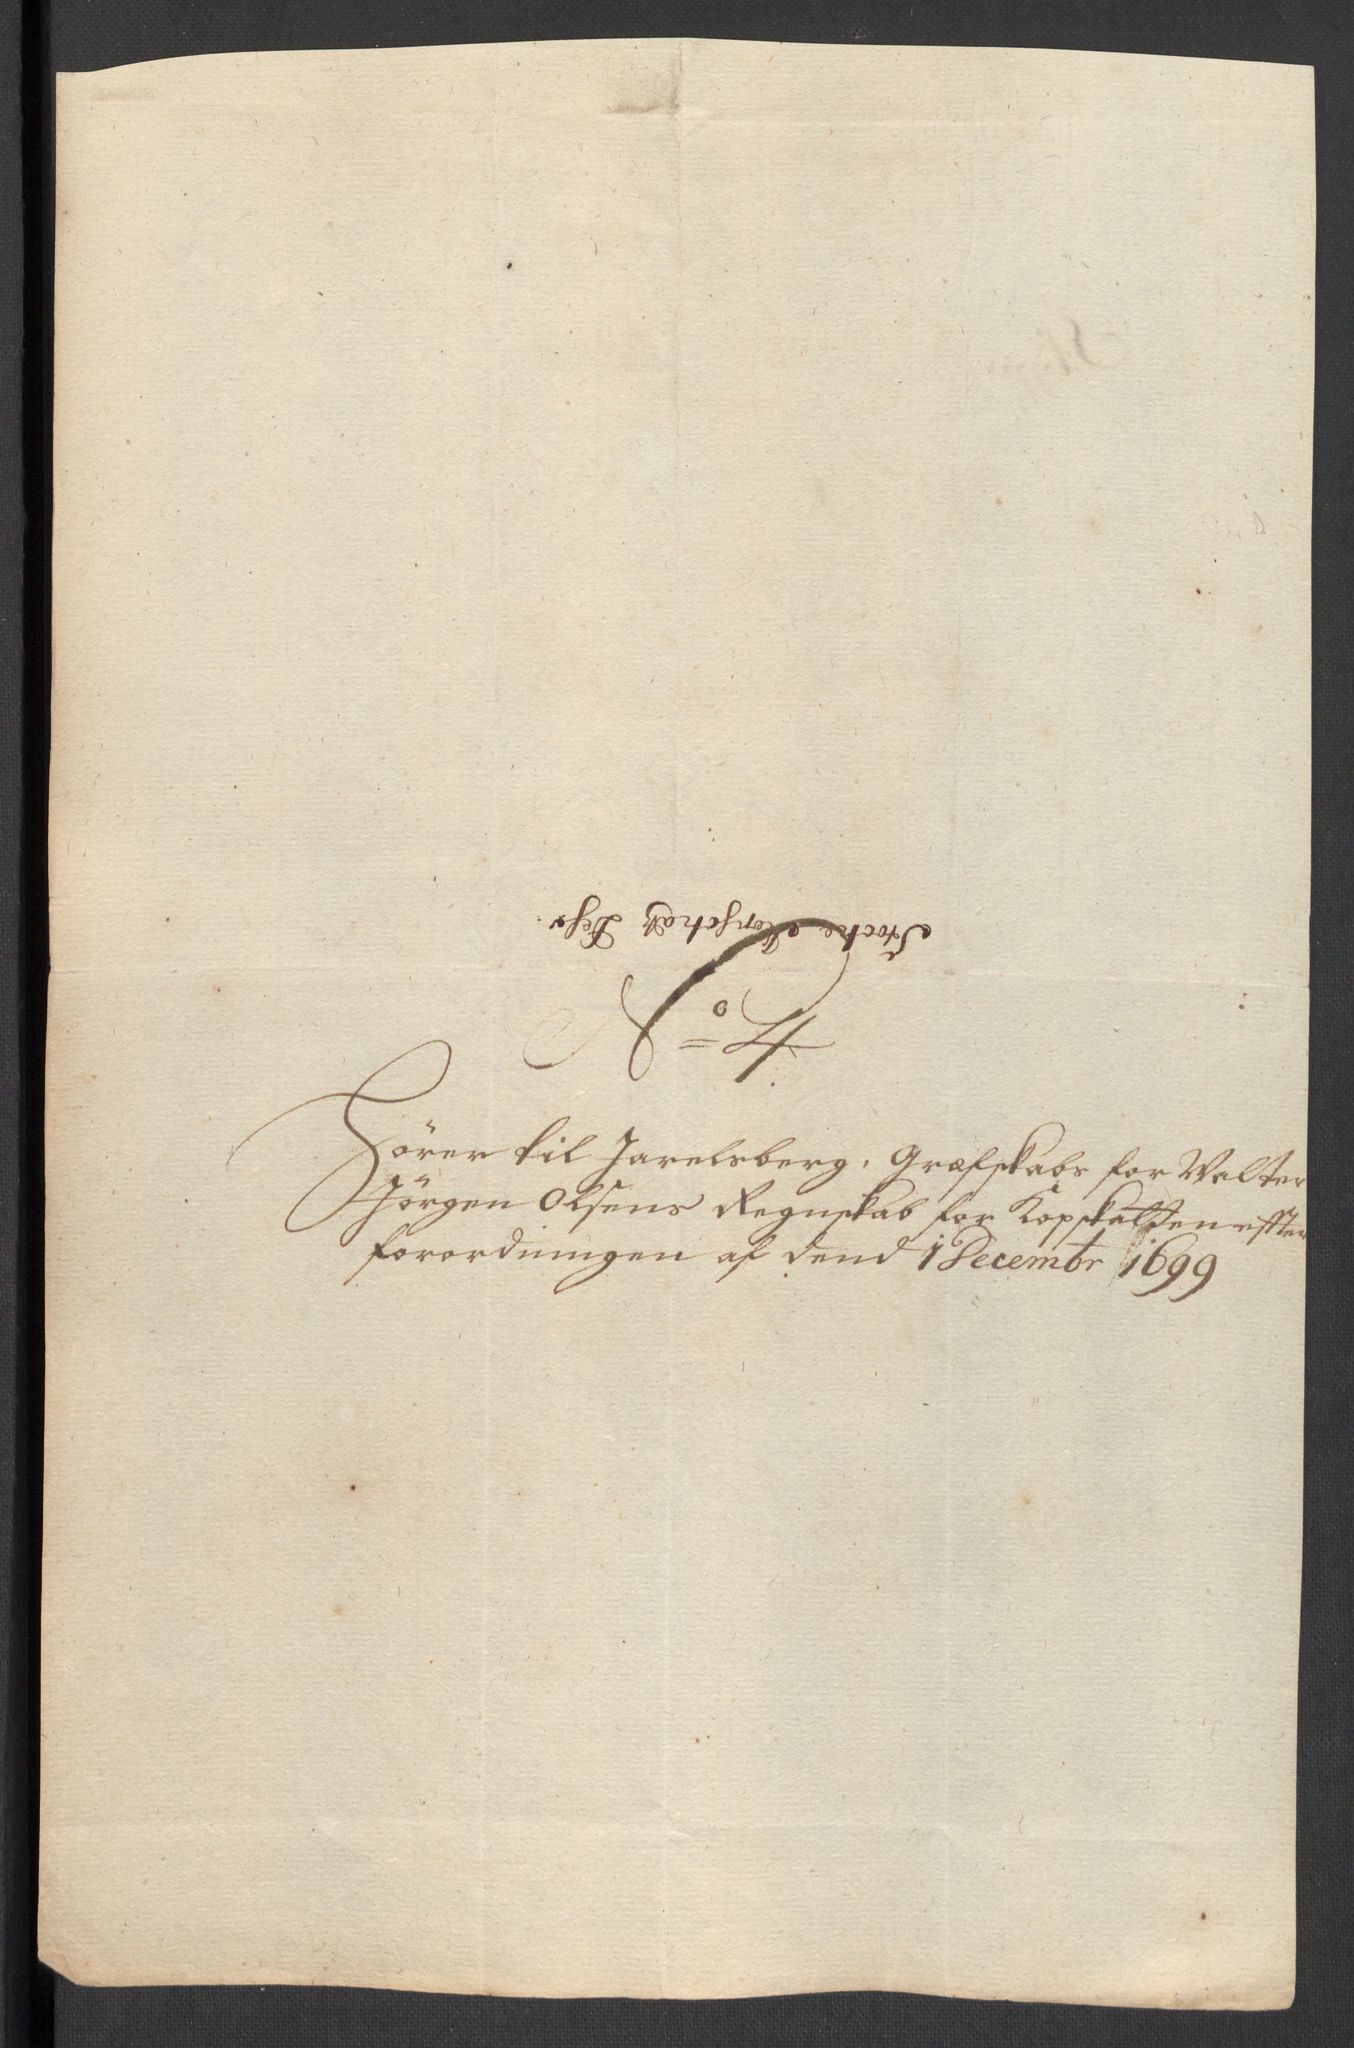 Stocke
No 4
Hörer til Jarelsberg. Græfskabs for Walter
Jörgen Olsens Regnskab for Kopskatten effter
forordningen af dend 1 Decembr 1699